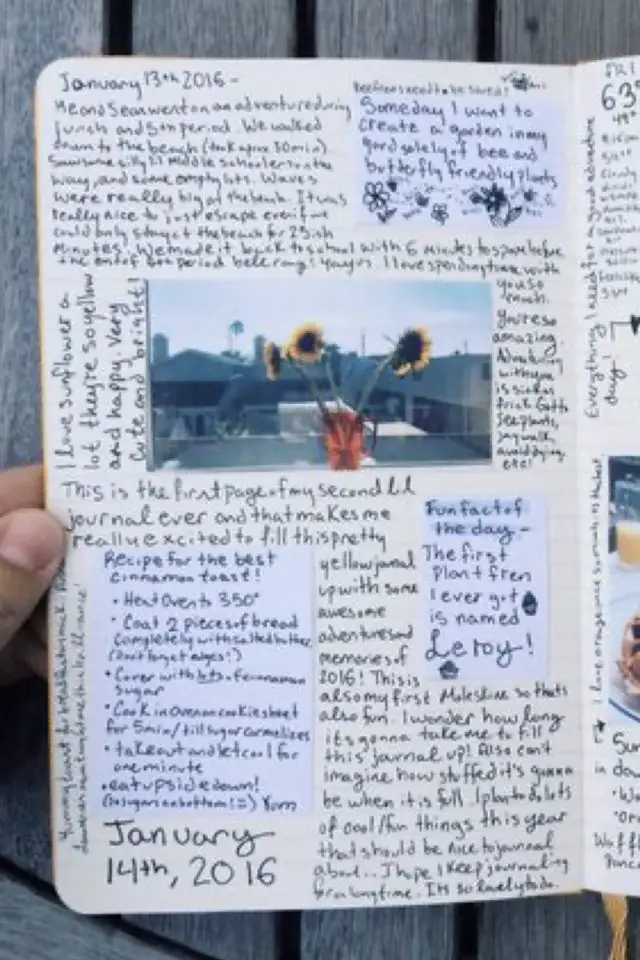 January 13th 2016 -
Me and Sean went on an adventure during
lunch and 5th period. We walked
down to the beach (took aprox 30 min)
Saw some silly middle schoolers on the
way, and some empty lots. Waves
were really big at the beach. It was
really nice to just escape even if we
could only stay at the beach for 25ish
minutes. We made it back to school with 6 minutes to spare before
the end of 6th period bell rang! yay us. I love spending time with
you so
much.
You're so
amazing.
Adventuring
with you
is
Gotta
see plants,
jaywalk,
avoid dying
etc!
Bee friens need to be saved!
Someday I want to
create a garden in my
yard solely of bee and
butterfly friendly plants
I love sunflower a
lot they're so yellow
and happy. Very
cute and bright!
This is the first page of my second lil
journal ever and that makes me
really excited to fill this pretty
yellow journal
up with some
awesome
adventures and
memories of
2016! This is
also my first Moleskine so thats
also fun. I wonder how long
its gonna take me to fill
this journal up! Also can't
imagine how stuffed it's gonna
be when it is full. I plan to do lots
of cool/fun things this year
that should be nice to journal
about... I hope I keep journaling
for a long time. Its so lovely to do.
Fun fact of
the day -
The first
plant fren
I ever got
is named
Leroy!
Recipe for the best
cinnamon toast!
• Heat Oven to 350°
• Coat 2 pieces of bread
completely with salted butter
(Don't forget edges!)
• Cover with lots of cinnamon
sugar
• Cook in oven on cookie sheet
for 5 min/till sugar carmelizes
• take out and let cool for
one minute
• eat upside down!
(So sugars on bottom! =) Yum
January
14th, 2016
FRI
63°
49°
Everything I need for a good adventure
day!
I love orange juice so much
Sun
in da
Waffl
Panc